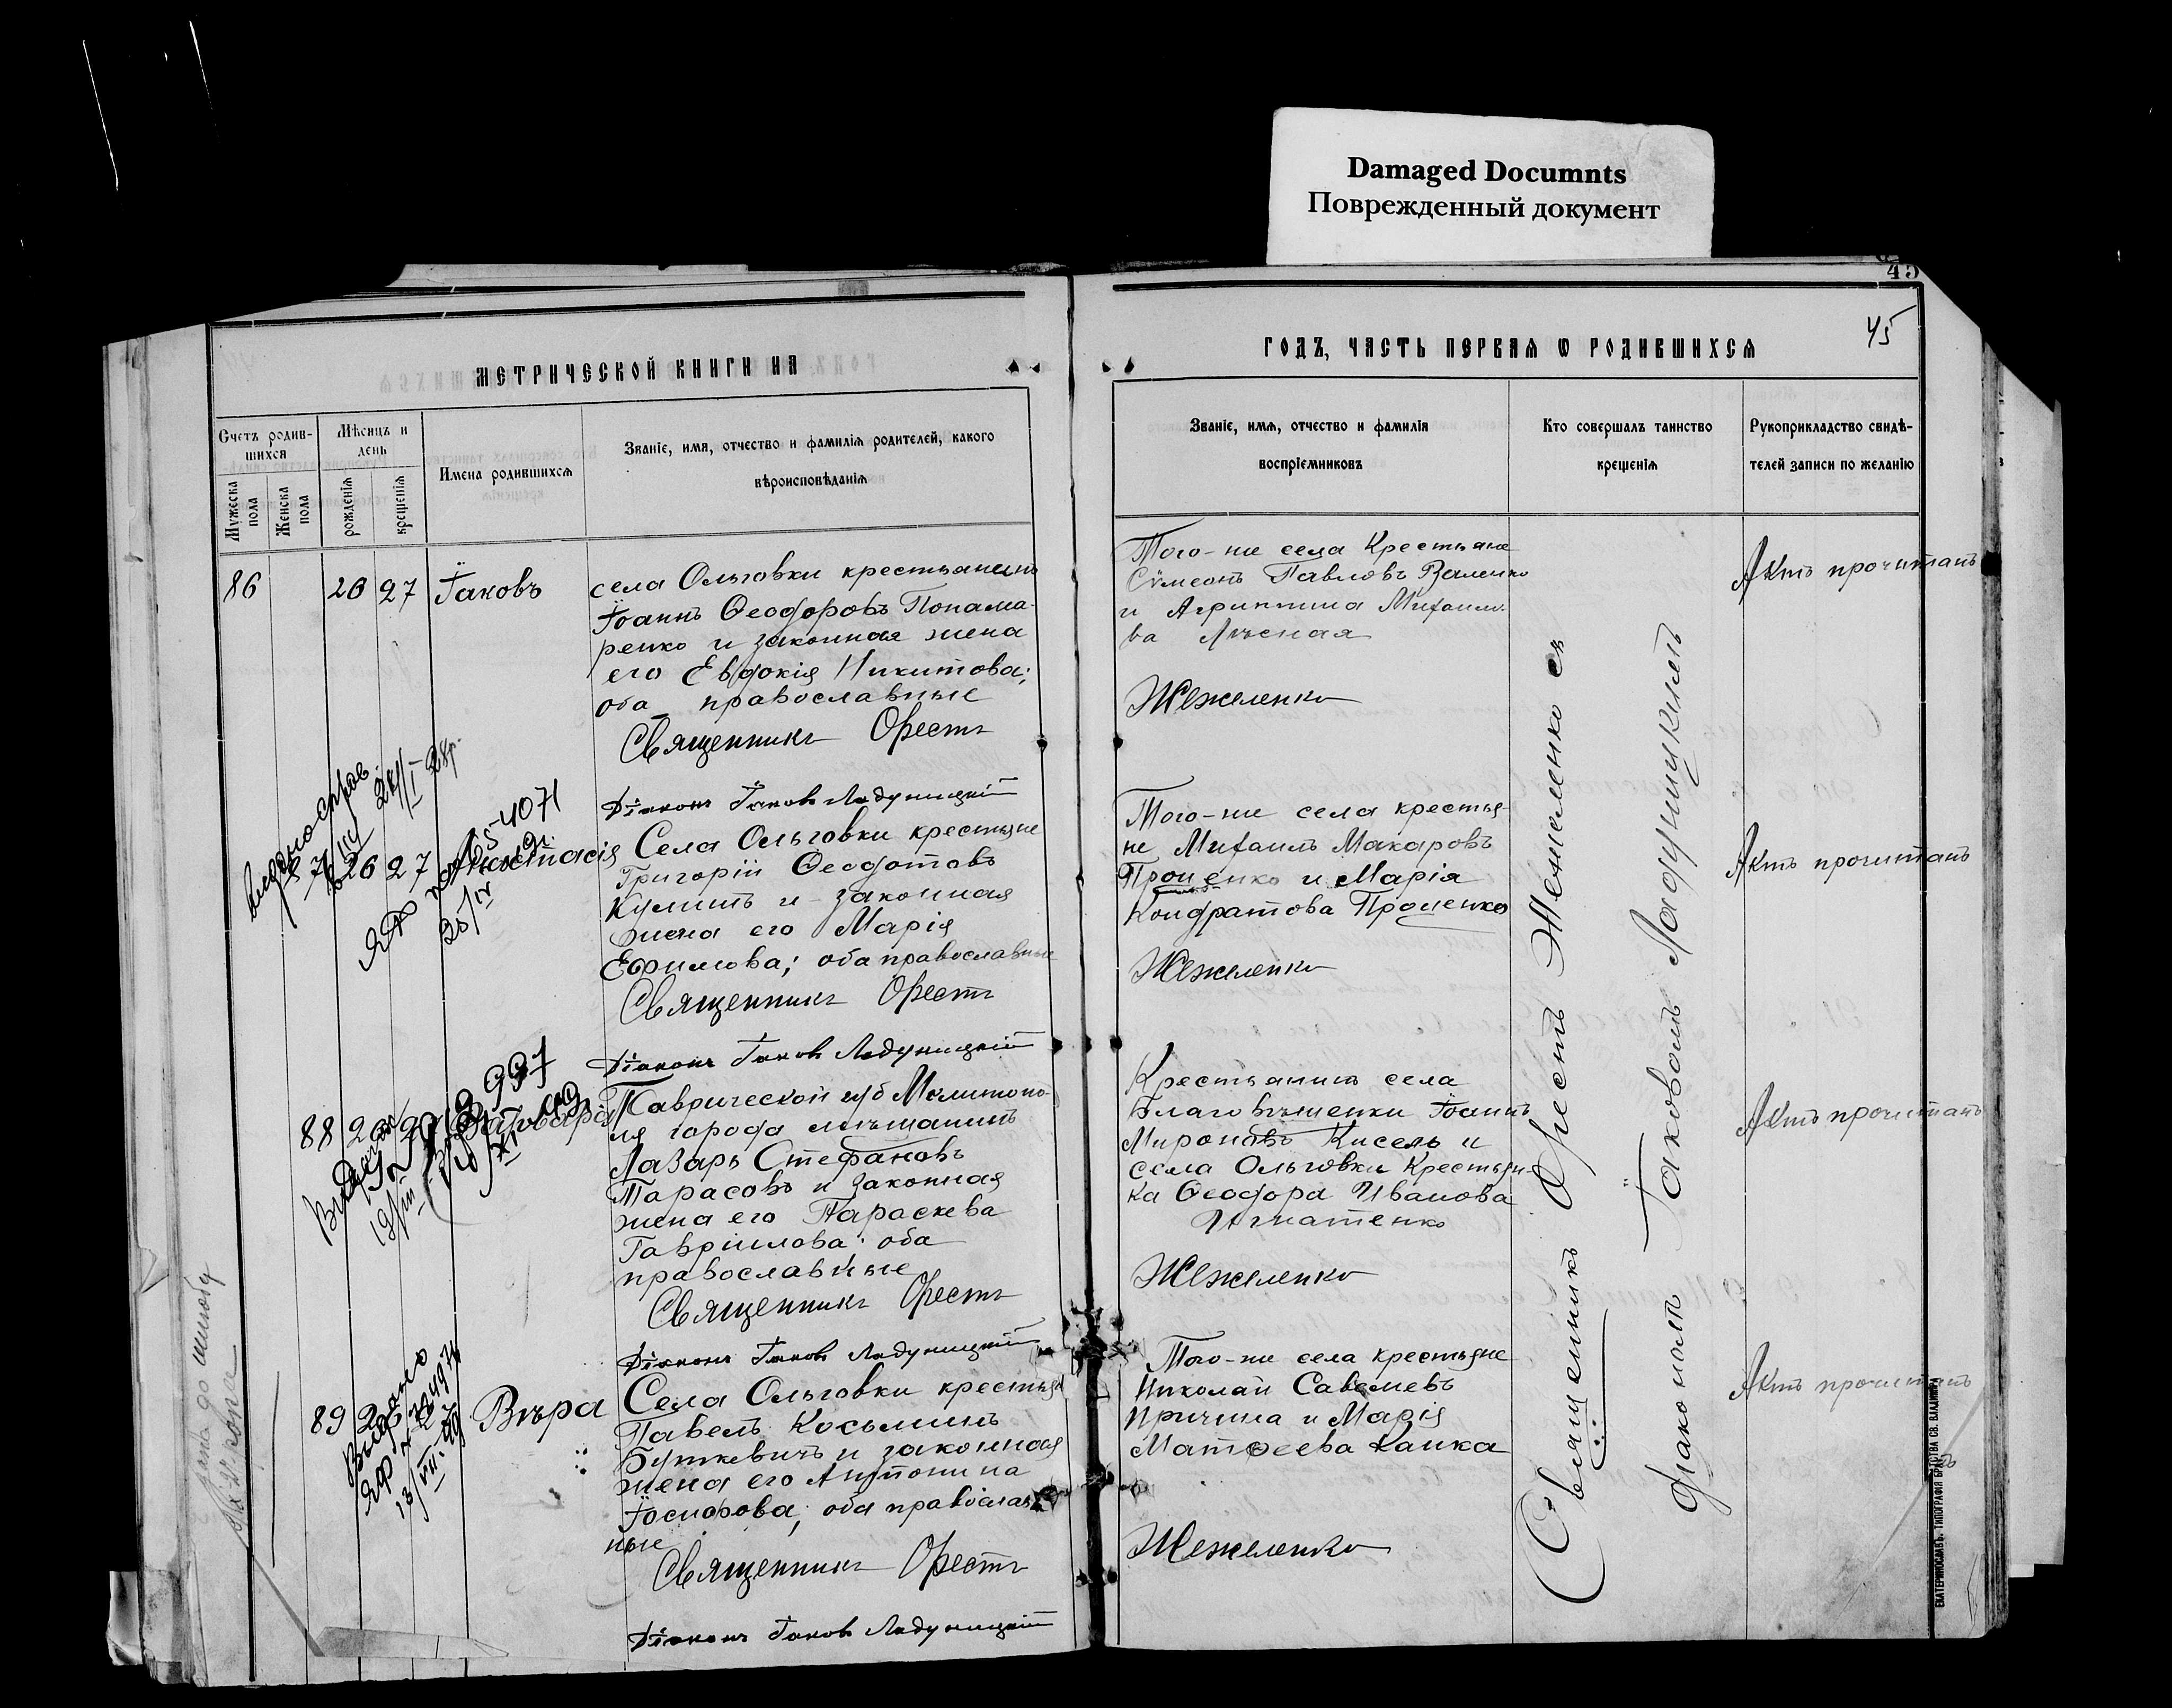 Damaged Documnts
Поврежденный документ
45
45
МЕТРИЧЕСКОЙ КНИГИ НА
ГОДЪ, ЧАСТЬ ПЕРВАЯ Ѡ РОДИВШИХСЯ
Счетъ родив-
шихся
Мужеска
пола
Женска
пола
Мѣсяцъ и
день
рожденія
крещенія
Имена родившихся
Званіе, имя, отчество и фамилія родителей, какого
вѣроисповѣданія
Званіе, имя, отчество и фамилія
воспріемниковъ
Кто совершалъ таинство
крещенія
Рукоприкладство свидѣ-
телей записи по желанію
86 26 27 Іаковъ
села Ольговки крестьянинъ
Іоаннъ Ѳеодоровъ Понама-
ренко и законная жена
его Евдокія Никитова;
оба православные
Священникъ Орестъ
Діаконъ Іаковъ Ладуницкій
Того-же села Крестьяне
Сѵмеонъ Павловъ
и Агриппина Михаило-
ва Лѣсная
Жежеленко
Актъ прочитанъ
26 27 Анастасія
Села Ольговки крестьяне
Григорій Ѳеодотовъ
и законная
жена его Марія
Ефимова; оба православные
Священникъ Орестъ
Діаконъ Іаковъ Ладуницкій
Того-же села крестья-
не Михаилъ Макаровъ
Проценко и Марія
Кондратова Проценко
Жежеленко
Актъ прочитанъ
88 Варвара
Таврической губ Мелитопо-
ля города мѣщанинъ
Лазарь Стефановъ
Тарасовъ и законная
жена его Параскева
Гавріилова; оба
православные
Священникъ Орестъ
Діаконъ Іаковъ Ладуницкій
Крестьянинъ села
Благовѣщенки Іоаннъ
Мироновъ Кисель и
села Ольговки Крестьян-
ка Ѳеодора Иванова
Игнатенко
Жежеленко
Актъ прочитанъ
89 Вѣра
Села Ольговки крестьян
Павелъ Косьминъ
Буткевичъ и законная
жена его Антонина
Іосифова; оба православ-
ные
Священникъ Орестъ
Діаконъ Іаковъ Ладуницкій
Того-же села крестьяне
Николай Савельевъ
Причина и Марія
Матѳеева
Жежеленко
Актъ прочитанъ
Священникъ Орестъ Жежеленко съ
діакономъ Іаковомъ Ладуницкимъ
ЕКАТЕРИНОСЛАВЪ. ТИПОГРАФІЯ БРАТСТВА СВ. ВЛАДИМІРА